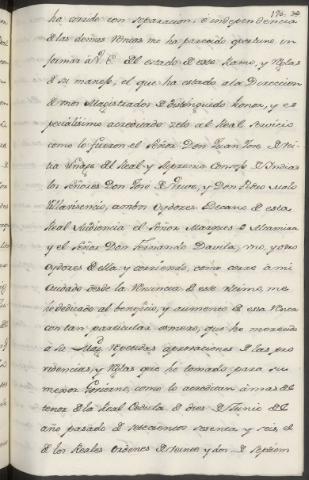 176. 34
ha corrido con separacion, e independencia
de las demas Rentas me ha parecido oportuno in-
formar à V. E. del estado de este Ramo, y Reglas
de su manejo, el que ha estado a la Direccion
de tres Magistrados de distinguido honor, y es-
pecialisimo acreditado zelo al Real Servicio
como lo fueron el Señor Don Juan José de
del Real y Supremo Consejo de Indias
los Señores Don José de y Don Pedro Malo
Villavicencio, ambos Oydores Decanos de esta
Real Audiencia el Señor Marques de Altamira
y el Señor Don Fernando Davila,
oydores de ella y corriendo, como corre à mi
cuidado desde la Renuncia de este ultimo, me
he dedicado al beneficio, y aumento de esta Renta
con tan particular que he merecido
à Su Mag. repetidas aprovaciones de las pro-
videncias, y Reglas que he tomado para su
mejor Govierno, como lo acreditan à mas del
tenor de la Real Cedula de dies de Junio del
año pasado de setecientos sesenta y seis, el
de los Reales Ordenes de veinte y dos de Septiem